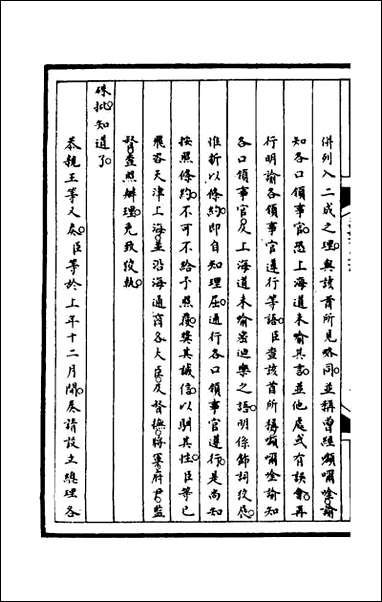 併列入二成之理與該酋所見略同並稱曾經頗囉唫諭
知各口領事官恐上海道未喻其意並他處或有誤會再
行明諭各領事官遵行等語臣查該酋所稱頗囉唫諭知
各口領事官及上海道未喻密迪樂之語明係飾詞狡展
惟斬以條約即自知理屈通行各口領事官遵行是尚知
按照條約不可不給予照覆獎其誠信以馴其性臣等已
飛咨天津上海並沿海通商各大臣及督撫將軍府尹監
督查照辦理免致狡執
硃批知道了
恭親王等又奏臣等於上年十二月間奏請設立總理各